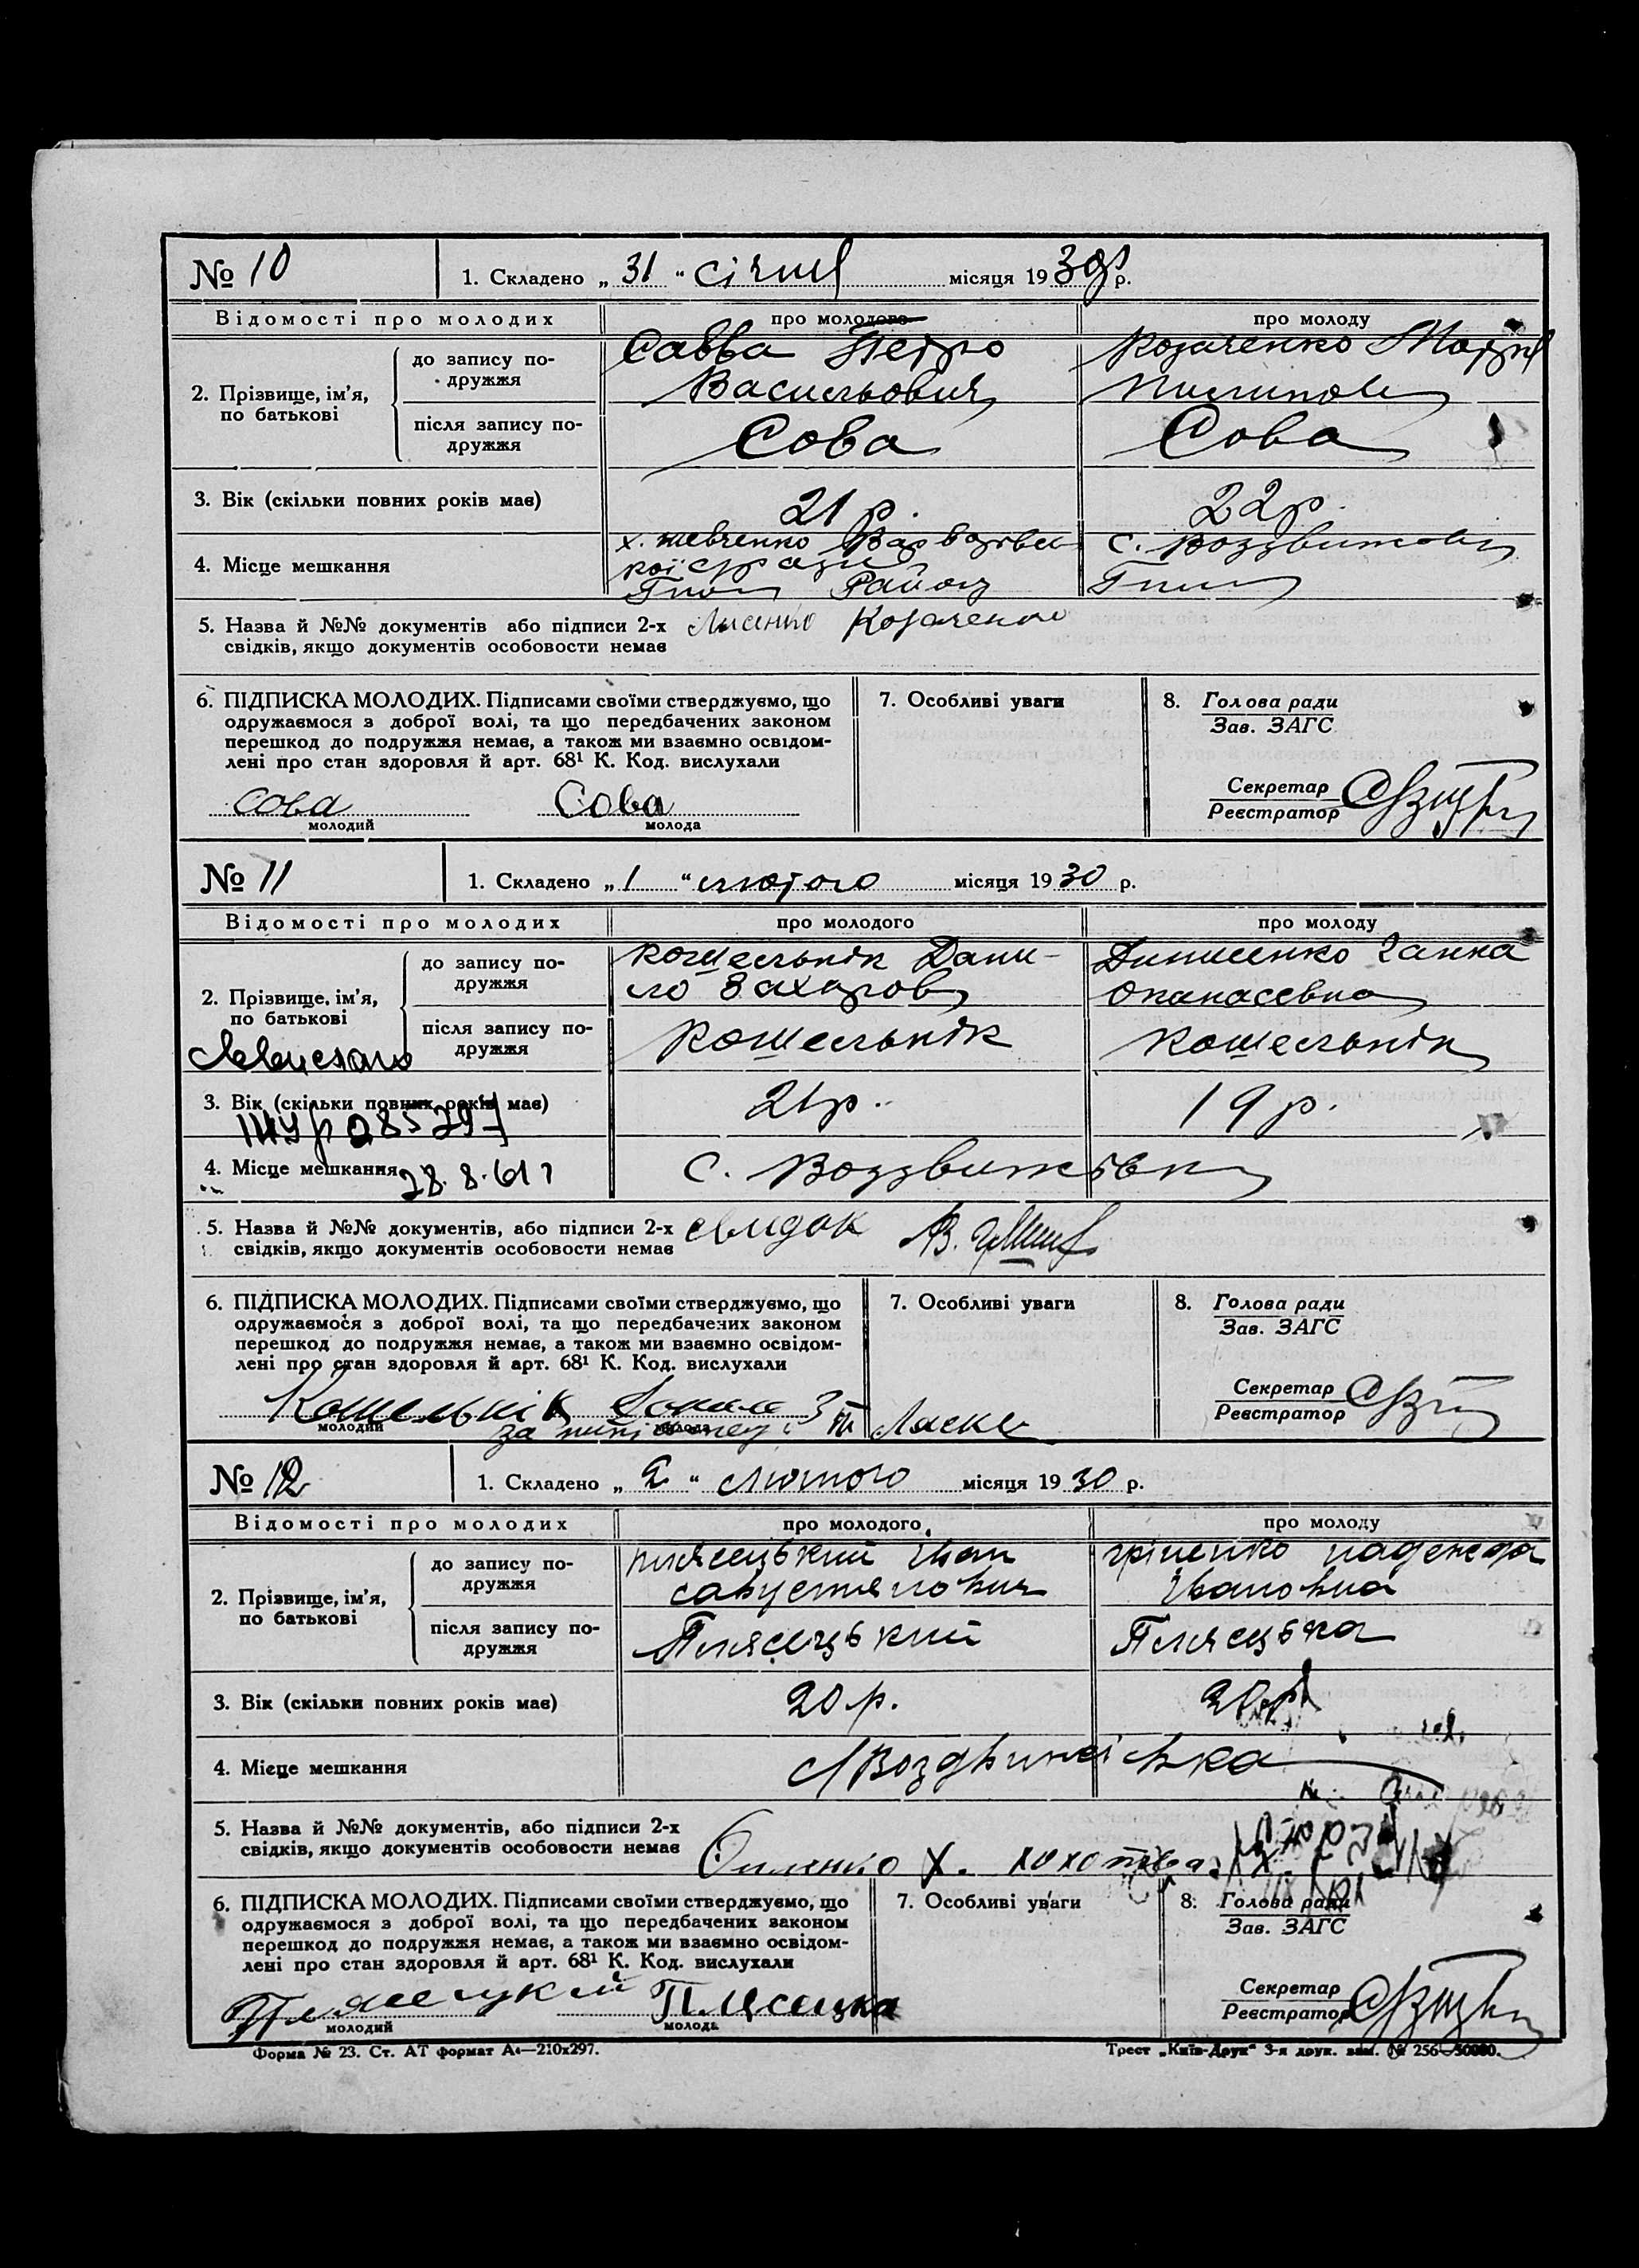 № 10
1. Складено „ 31 “ січня місяця 1930 р.
Відомості про молодих
про молодого
про молоду
2. Прізвище, ім’я, по батькові
до запису по-
дружжя
Савва Петро
Васильович
Козаченко Марія
після запису по-
дружжя
Сова
Сова
3. Вік (скільки повних років має)
21 р.
22 р.
4. Місце мешкання
х. Шевченко
Району
с. Воздвиженськ
5. Назва й №№ документів або підписи 2-х
свідків, якщо документів особовости немає
Лисенко Козаченко
6. ПІДПИСКА МОЛОДИХ. Підписами своїми стверджуємо, що
одружаємося з доброї волі, та що передбачених законом
перешкод до подружжя немає, а також ми взаємно освідом-
лені про стан здоровля й арт. 68¹ К. Код. вислухали
Сова
молодий
Сова
молода
7. Особливі уваги
8. Голова ради
Зав. ЗАГС
Секретар
Реєстратор
№ 11
1. Складено „ 1 “ лютого місяця 1930 р.
Відомості про молодих
про молодого
про молоду
2. Прізвище, ім’я,
по батькові
до запису по-
дружжя
Кошельнік Дани-
ло Захаров
Ганна
Опанасевна
після запису по-
дружжя
Кошельнік
Кошельнік
3. Вік (скільки повних років має)
21 р.
19 р.
4. Місце мешкання
28.8.61
с. Воздвижівк
5. Назва й №№ документів, або підписи 2-х
свідків, якщо документів особовости немає
свидок
6. ПІДПИСКА МОЛОДИХ. Підписами своїми стверджуємо, що
одружаємося з доброї волі, та що передбачених законом
перешкод до подружжя немає, а також ми взаємно освідом-
лені про стан здоровля й арт. 68¹ К. Код. вислухали
Кошельнік
молодий
молода
7. Особливі уваги
8. Голова ради
Зав. ЗАГС
Секретар
Реєстратор
№ 12
1. Складено „ 2 “ Лютого місяця 1930 р.
Відомості про молодих
про молодого
про молоду
2. Прізвище, ім’я,
по батькові
до запису по-
дружжя
Плясецький Іван
грінепко надежда
Івановна
після запису по-
дружжя
Плясецький
Плясецька
3. Вік (скільки повних років має)
20 р.
20 р.
4. Місце мешкання
с Воздвижівка
5. Назва й №№ документів, або підписи 2-х
свідків, якщо документів особовости немає
6. ПІДПИСКА МОЛОДИХ. Підписами своїми стверджуємо, що
одружаємося з доброї волі, та що передбачених законом
перешкод до подружжя немає, а також ми взаємно освідом-
лені про стан здоровля й арт. 68¹ К. Код. вислухали
молодий
Плясецка
молода
7. Особливі уваги
8. Голова ради
Зав. ЗАГС
Секретар
Реєстратор
Форма № 23. Ст. АТ формат А4—210x297.
Трест „Київ-Друк“ 3-я друк. зам. № 256—50000.